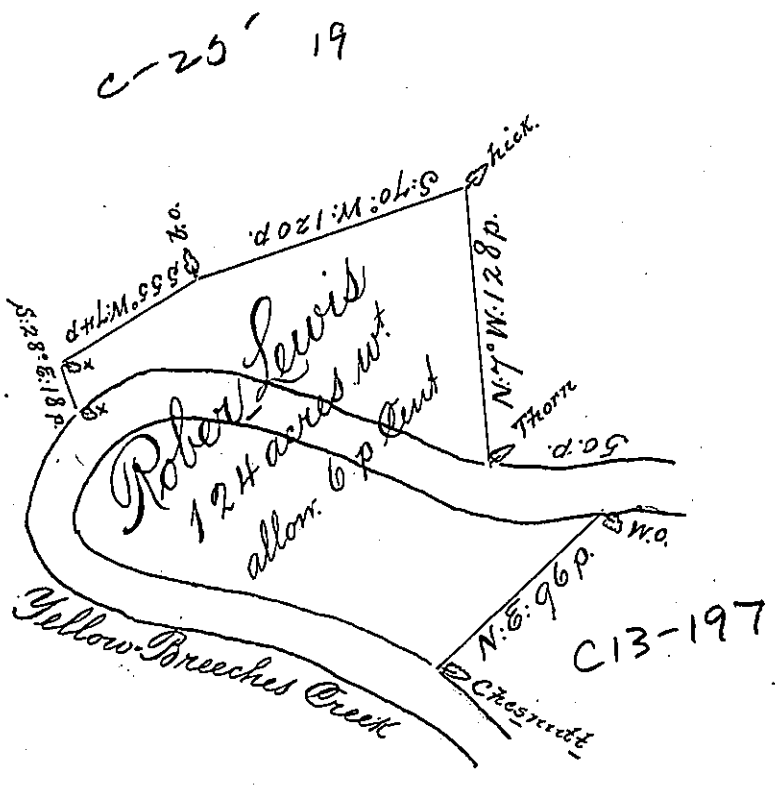 C-25 19
hick.
S:70°:W:120 p.
q.o.
S55°W:74p
S:28°E:18 p.
x
x
N:7°W:128p.
Thorn
50.p.
Rober Lewis
124 acres w.t
allow. 6 p Cent
W.o.
N:E:96p.
Chesnutt
Yellow-Breeches Creek
C13-197